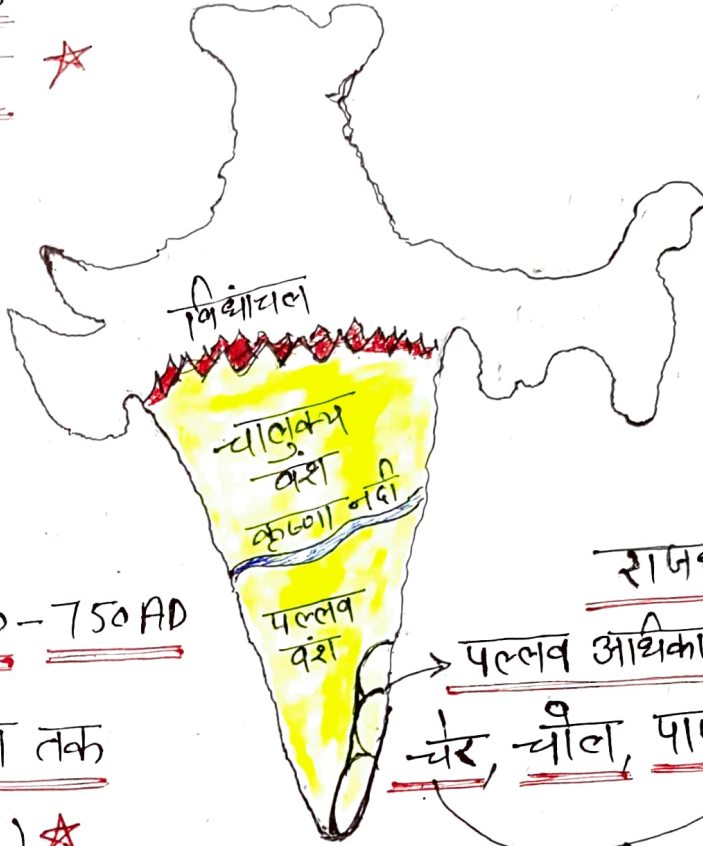 विधांचल
चालुक्य
वंश
कृष्णा नदी
पल्लव
वंश
- 750 AD
तक
पल्लव
चेर, चोल,